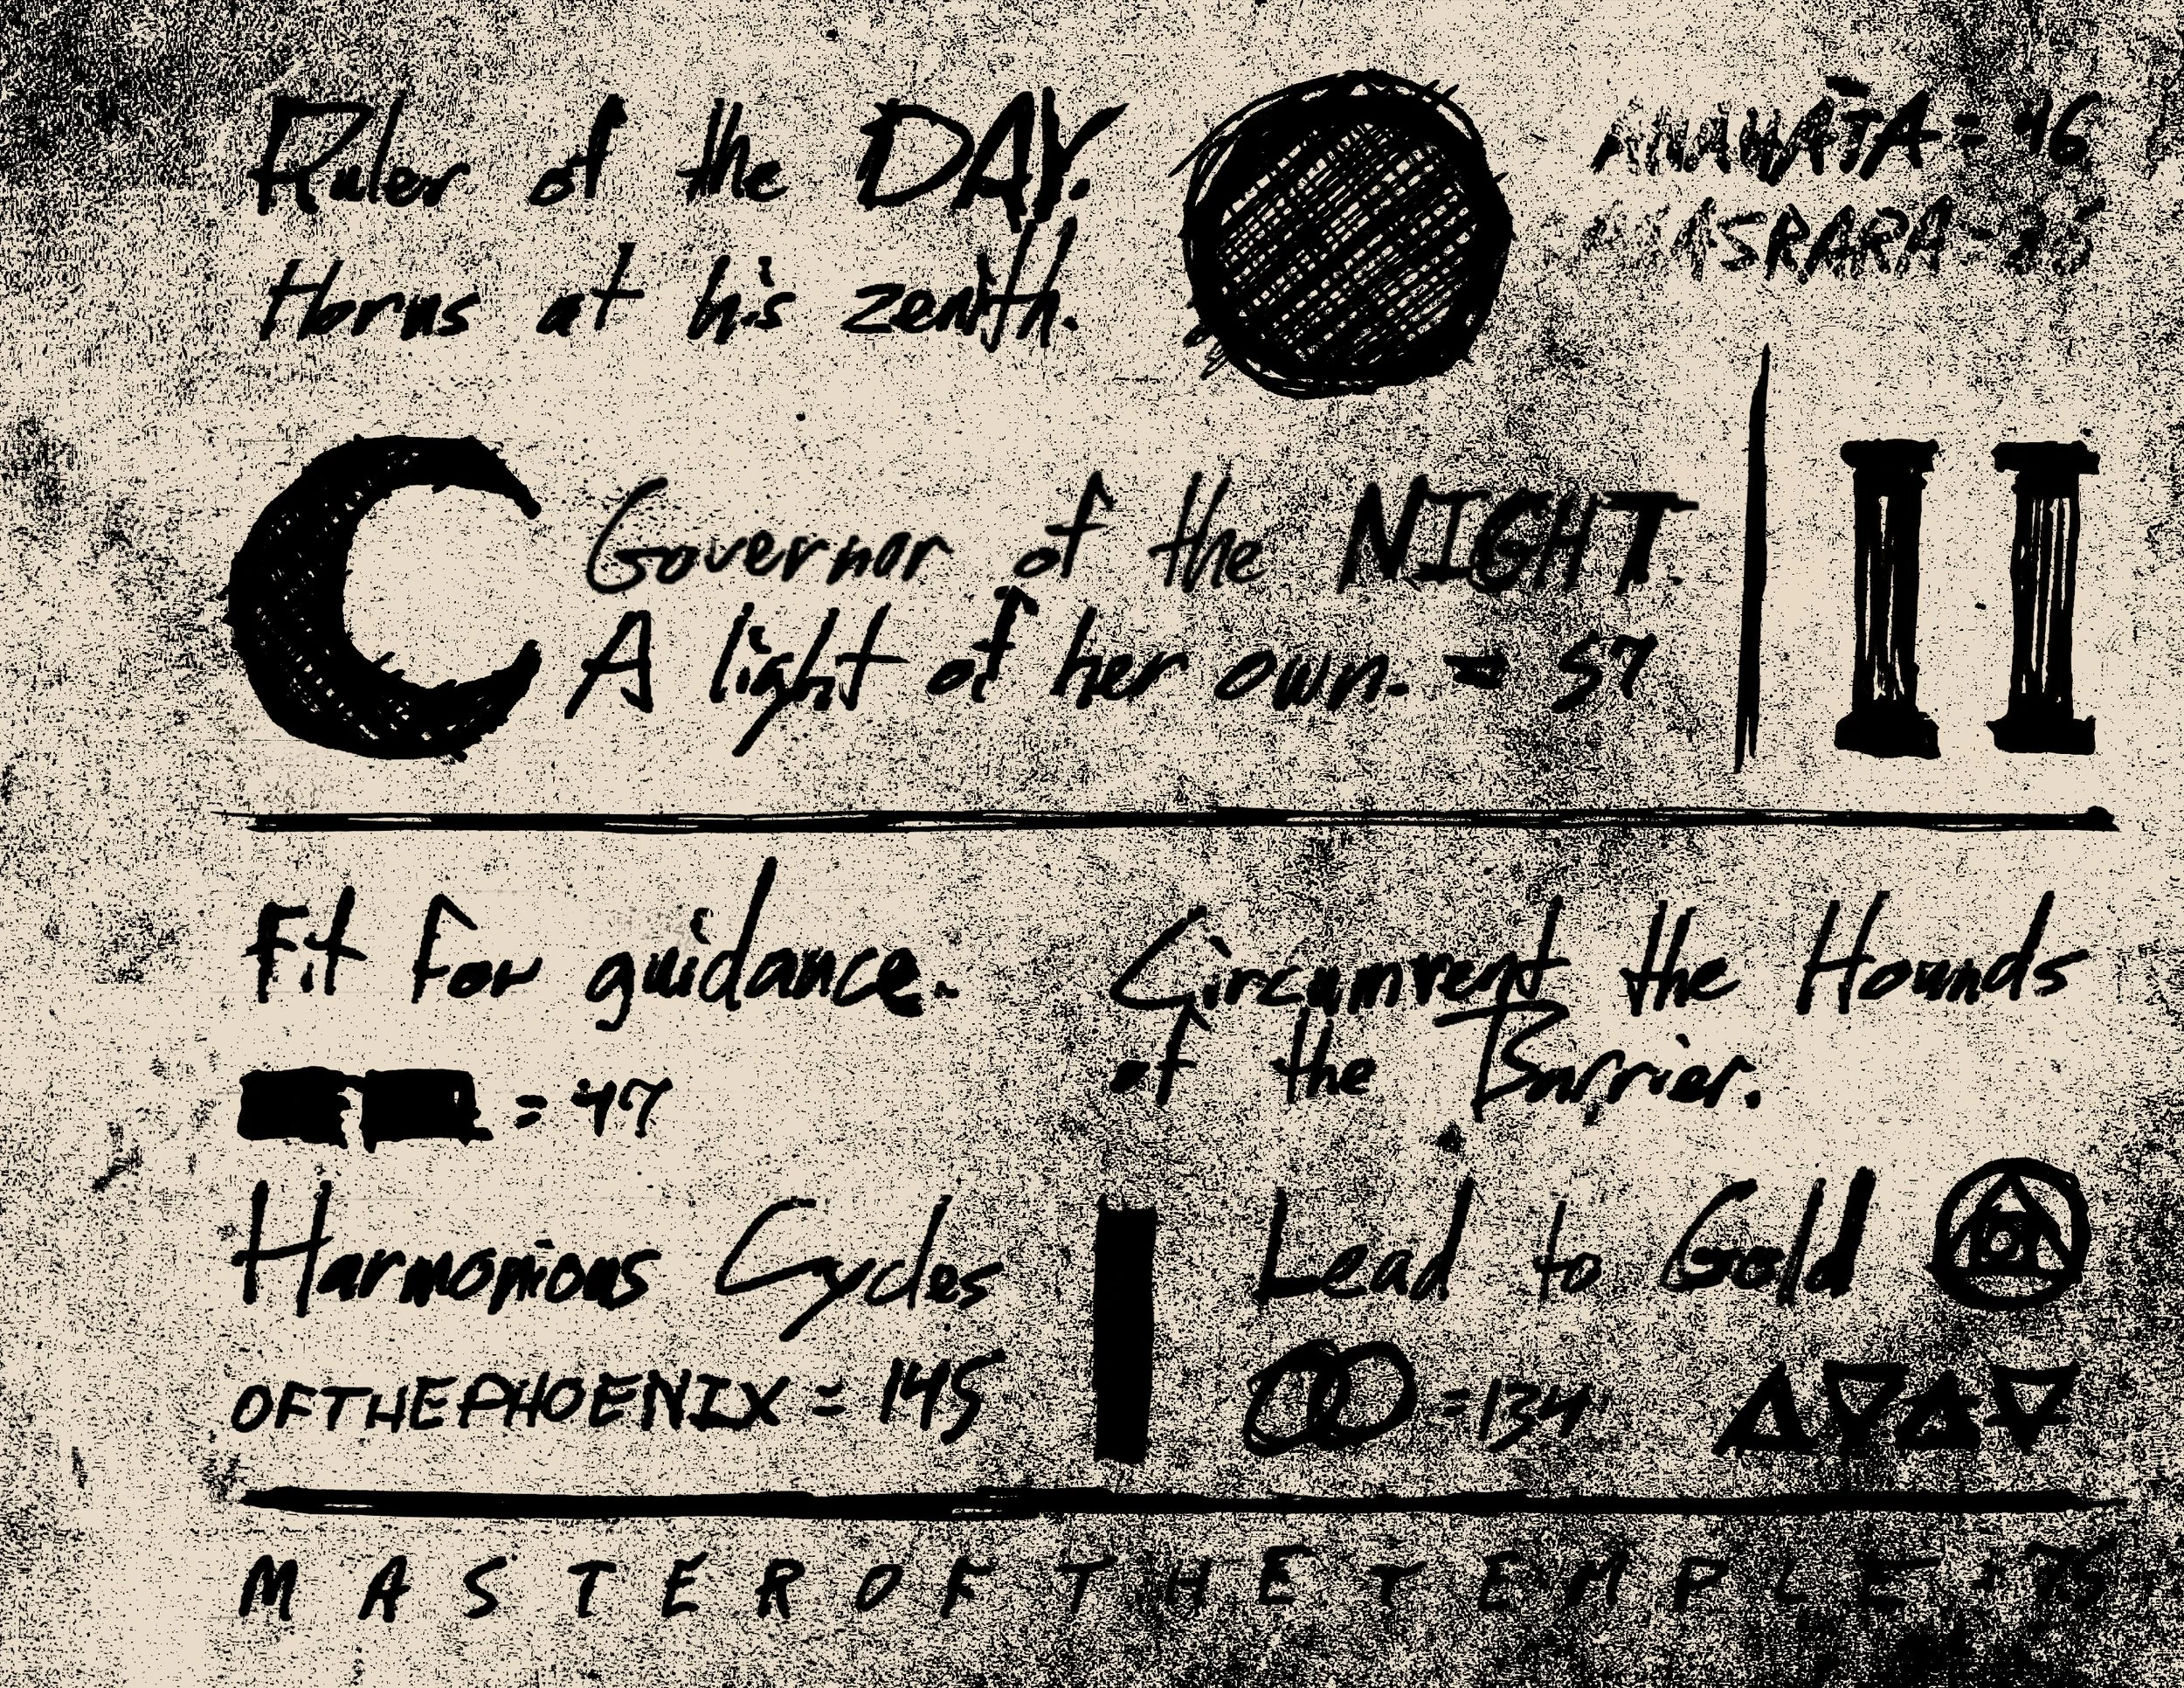 Ruler of the DAY.
Horus at his zenith.
ANAHĀTA = 46
Governor of the NIGHT.
A light of her own. = 57
Fit for guidance.
= 47
Circumvent the Hounds
of the Barrier.
Harmonious Cycles
OFTHEPHOENIX = 145
Lead to Gold
= 134
M A S T E R O F T H E T E M P L E = 75